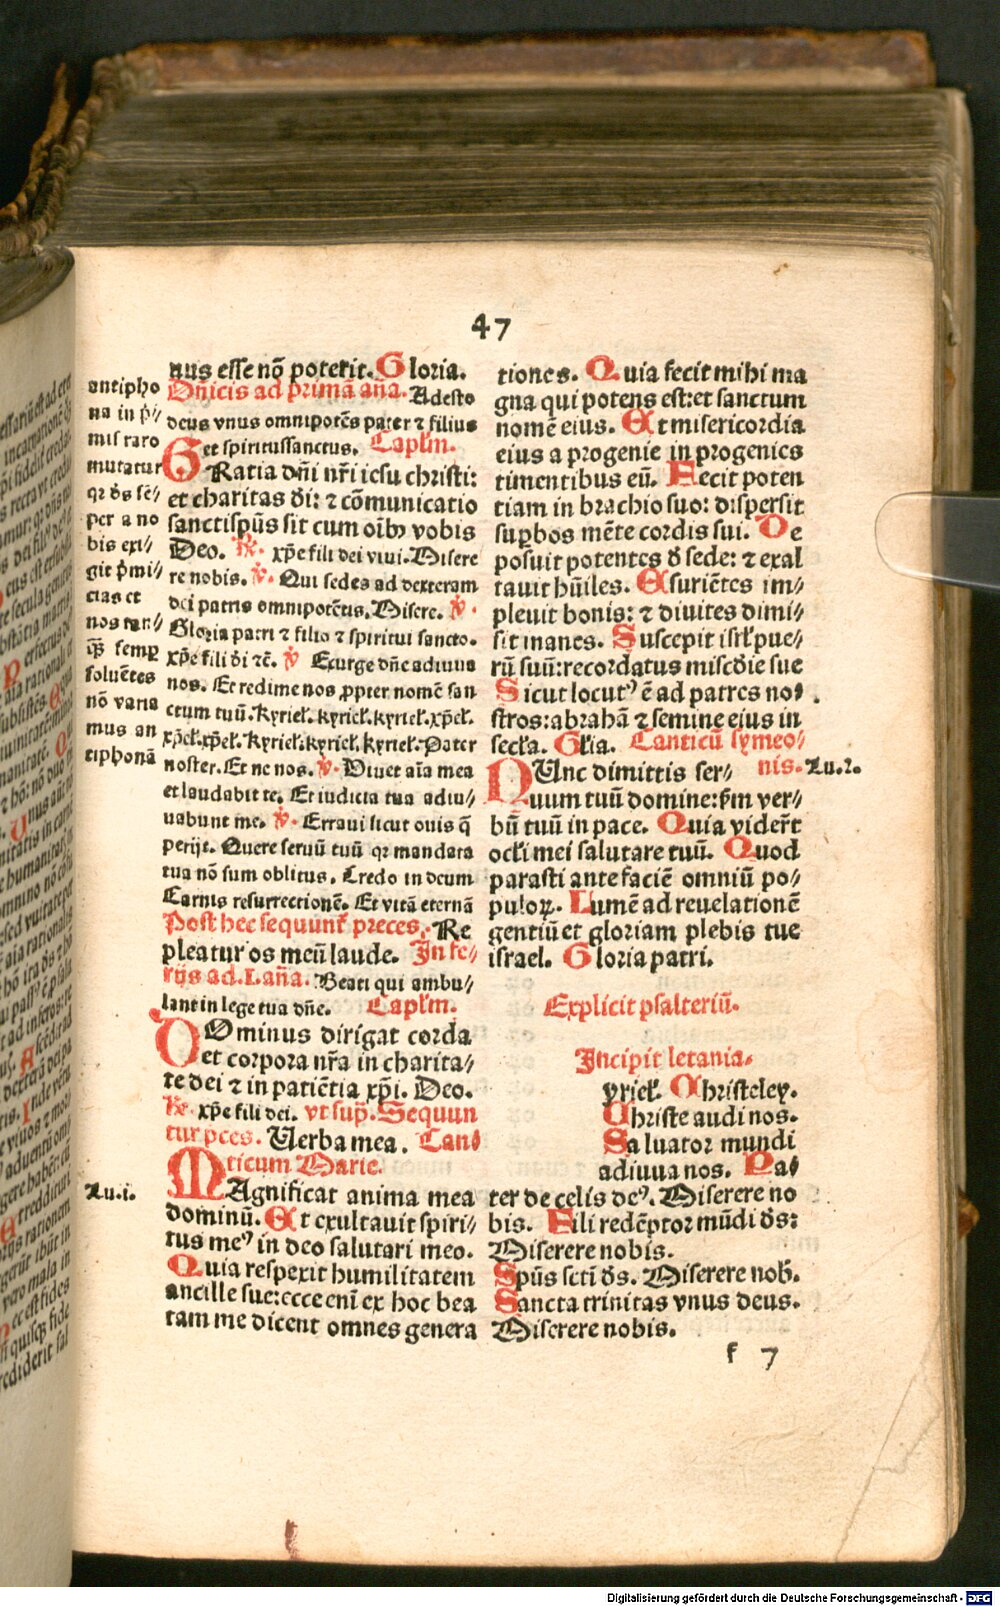 47
antipho
na in p̄//
mis raro
mutatur
qꝛ ds̄ sē//
per a no
bis exi//
git p̄mi//
cias et
nos tan//
qꝫ semꝑ
soluētes
nō varia
mus an
tiphonā
nus esse nō poterit. Gloria.
Dn̄icis ad primā an̄a. Adesto
deus vnus omnipotēs pater ⁊ filius
et spiritussanctus. Caplm̄.
GRatia dn̄i nr̄i iesu christi:
et charitas d̄i: ⁊ cōmunicatio
sanctispūs sit cum oībꝰ vobis
Deo. ℟. xp̄e fili dei viui. Misere
re nobis. ℣. Qui sedes ad dexteram
dei patris omnipotētis. Misere. ℣.
Gloria patri ⁊ filio ⁊ spiritui sancto.
xp̄e fili d̄i ⁊c̄. ℣ Exurge dn̄e adiuua
nos. Et redime nos ꝓpter nomē san
ctum tuū. kyriel̄. kyriel̄. kyriel̄. xp̄el̄.
xp̄el̄. xp̄el̄. kyriel̄. kyriel̄. kyriel̄. Pater
noster. Et ne nos. ℣. Viuet aīa mea
et laudabit te. Et iudicia tua adiu//
uabunt me. ℣. Erraui sicut ouis q̄
perijt. Quere seruū tuū qꝛ mandata
tua nō sum oblitus. Credo in deum
Carnis resurrectionē. Et vitā eternā
Post hec sequunt̄ preces. Re
pleatur os meū laude. In fe//
rijs ad. I. an̄a. Beati qui ambu//
lant in lege tua dn̄e. Caplm̄.
DOminus dirigat corda
et corpora nr̄a in charita//
te dei ⁊ in patiētia xp̄i. Deo.
℟. xp̄e fili dei. vt sup̄. Sequun
tur p̄ces. Uerba mea. Can//
ticum Marie.
Lu.i.
MAgnificat anima mea
dominū. Et exultauit spiri//
tus meꝰ in deo salutari meo.
Quia respexit humilitatem
ancille sue: ecce enī ex hoc bea
tam me dicent omnes genera
tiones. Quia fecit mihi ma
gna qui potens est: et sanctum
nomē eius. Et misericordia
eius a progenie in progenies
timentibus eū. Fecit poten
tiam in brachio suo: dispersit
suꝑbos mēte cordis sui. De
posuit potentes d̄ sede: ⁊ exal
tauit hūiles. Esuriētes im//
pleuit bonis: ⁊ diuites dimi//
sit inanes. Suscepit isrl̄ pue//
rū suū: recordatus misc̄die sue
Sicut locutꝰ ē ad patres no//
stros: abrahā ⁊ semine eius in
secl̄a. Gl̄ia. Canticū symeo//
nis. Lu.2.
NUnc dimittis ser//
uum tuū domine: s̄m ver//
bū tuū in pace. Quia vider̄t
ocl̄i mei salutare tuū. Quod
parasti ante faciē omniū po//
puloꝝ. Lumē ad reuelationē
gentiū et gloriam plebis tue
israel. Gloria patri.
Explicit psalteriū.
Incipit letania.
yriel̄. Christeley.
Christe audi nos.
Saluator mundi
adiuua nos. Pa//
ter de celis deꝰ. Miserere no
bis. Fili redēptor mūdi ds̄:
Miserere nobis.
Spūs sctī ds̄. Miserere nob̄.
Sancta trinitas vnus deus.
Miserere nobis.
f 7
Digitalisierung gefördert durch die Deutsche Forschungsgemeinschaft - DFG